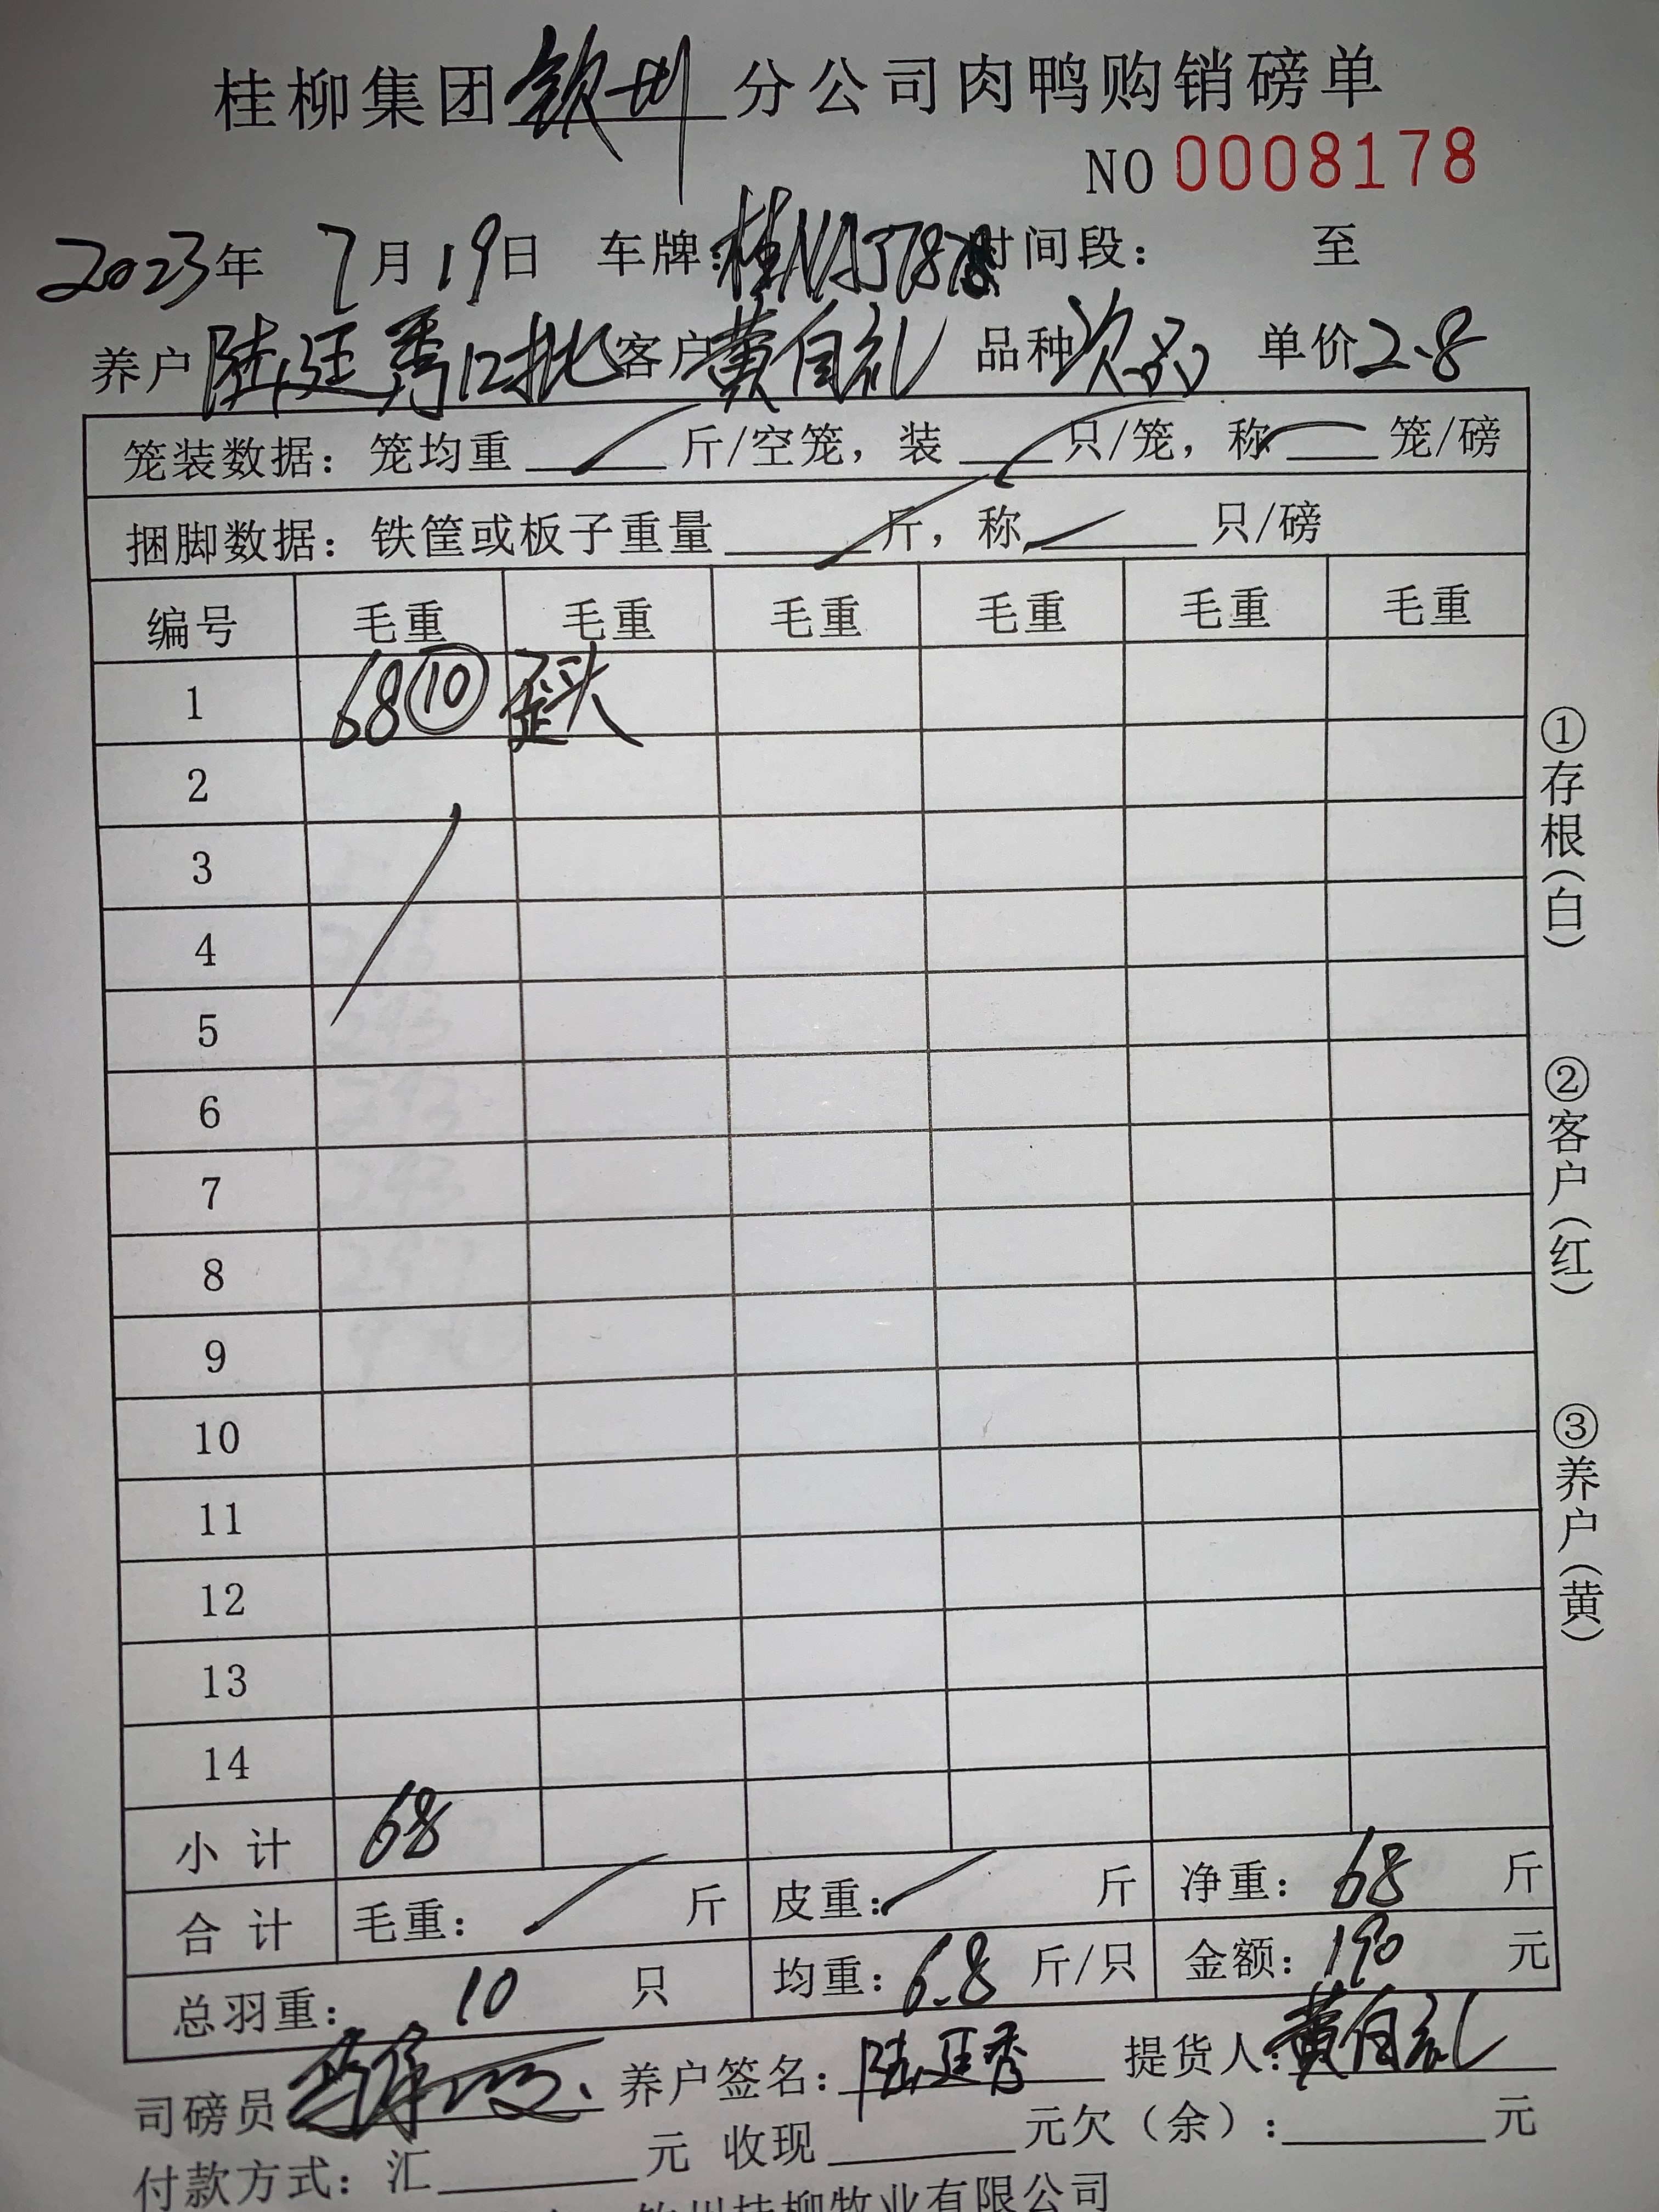 桂柳集团钦州分公司肉鸭购销磅单
NO 0008178
2023年 7月19日 车牌: 时间段: 至
养户陆廷秀12批 客户黄自礼 品种次品 单价2.8
笼装数据: 笼均重 斤/空笼, 装 只/笼, 称 笼/磅
捆脚数据: 铁筐或板子重量 斤, 称 只/磅
编号 毛重 毛重 毛重 毛重 毛重 毛重
1 68⑩ 歪头
2
3
4
5
6
7
8
9
10
11
12
13
14
小计 68
合计 毛重: 斤 皮重: 斤 净重: 68 斤
总羽重: 10 只 均重: 6.8 斤/只 金额: 190 元
司磅员 养户签名: 陆廷秀 提货人: 黄自礼
付款方式: 汇 元 收现 元欠(余): 元
钦州桂柳牧业有限公司
①存根(白)
②客户(红)
③养户(黄)